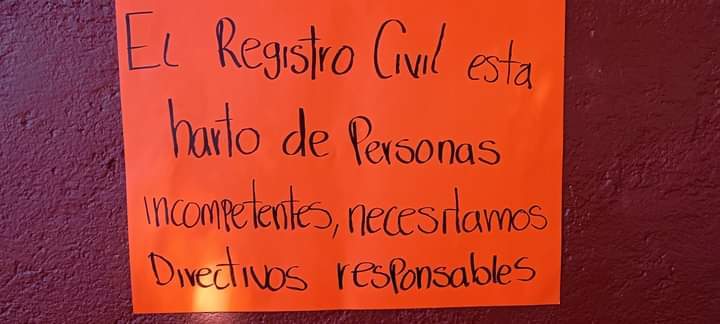 El Registro Civil esta
harto de Personas
incompetentes, necesitamos
Directivos responsables